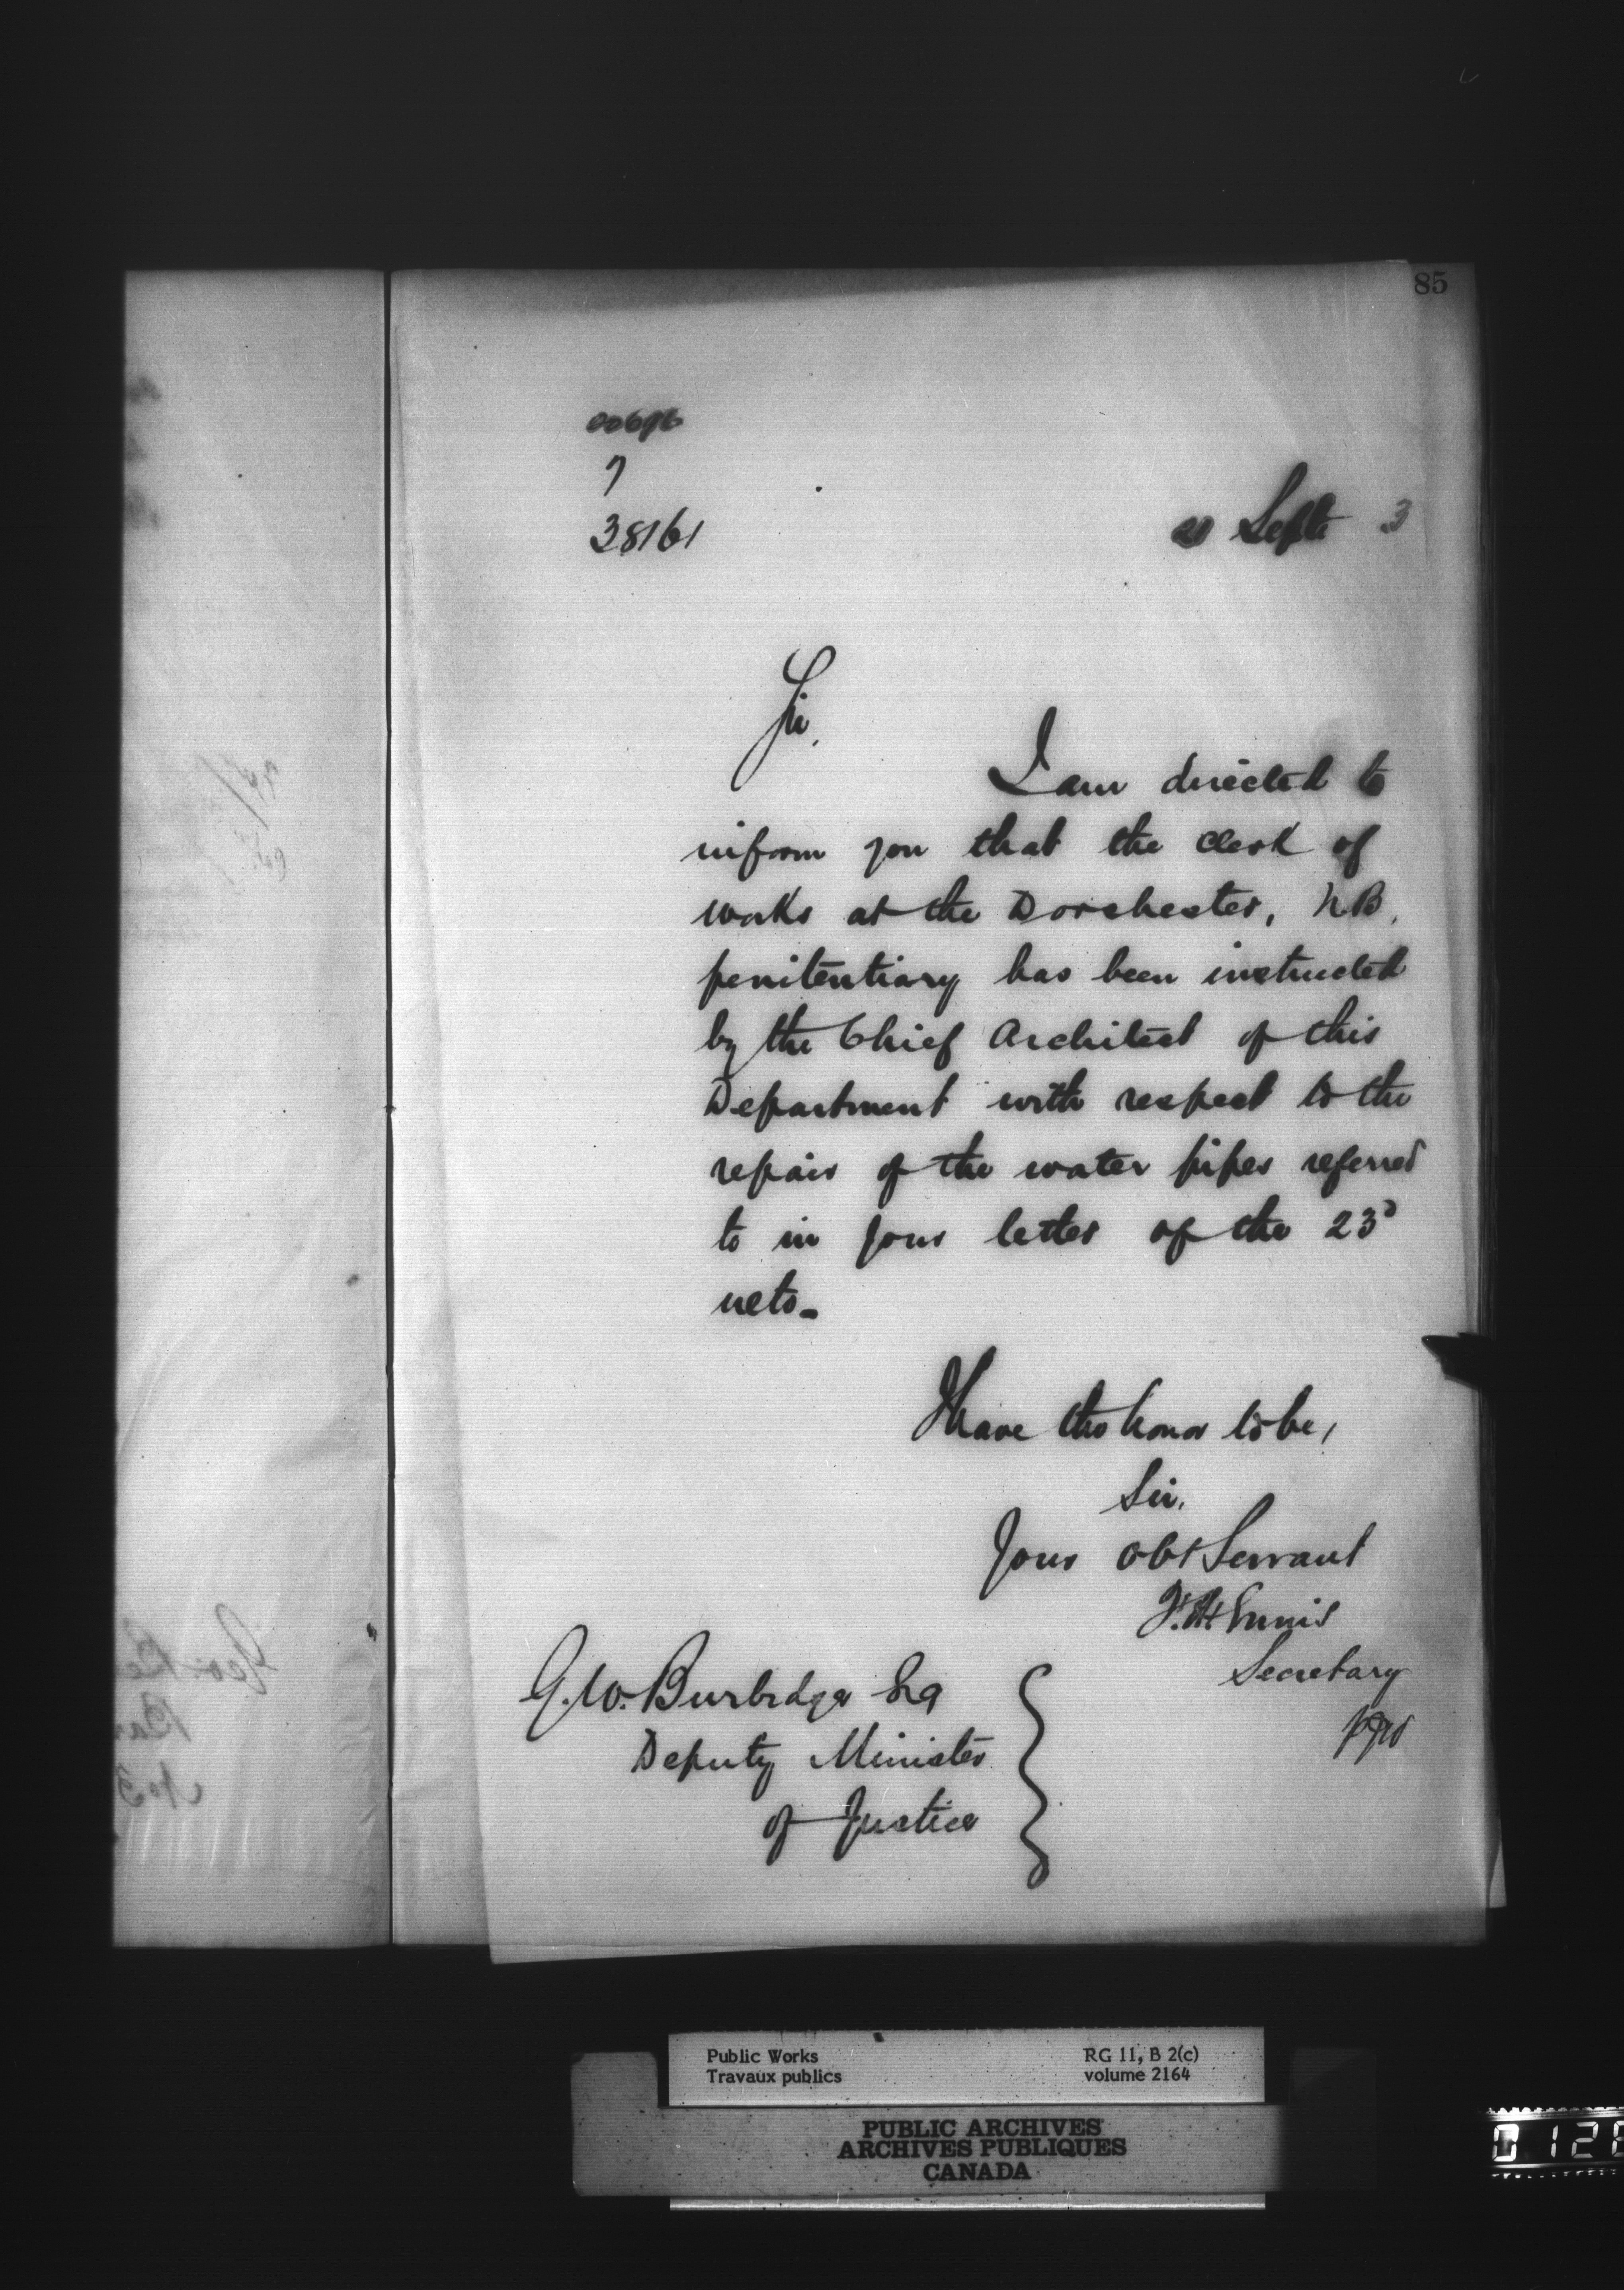 85
7
38161
Septr 3
Sir,
I am directed to
inform you that the clerk of
works at the Dorchester, N.B.
penitentiary has been instructed
by the Chief Architect of this
Department with respect to the
repair of the water pipes referred
to in your letter of the 23d
ulto.
I have the honor to be,
Sir,
Your Obt Servant
F. H. Ennis
Secretary
G. W. Burbidge Esq
Deputy Minister
of Justice
Public Works
Travaux publics
RG 11, B 2(c)
volume 2164
PUBLIC ARCHIVES
ARCHIVES PUBLIQUES
CANADA